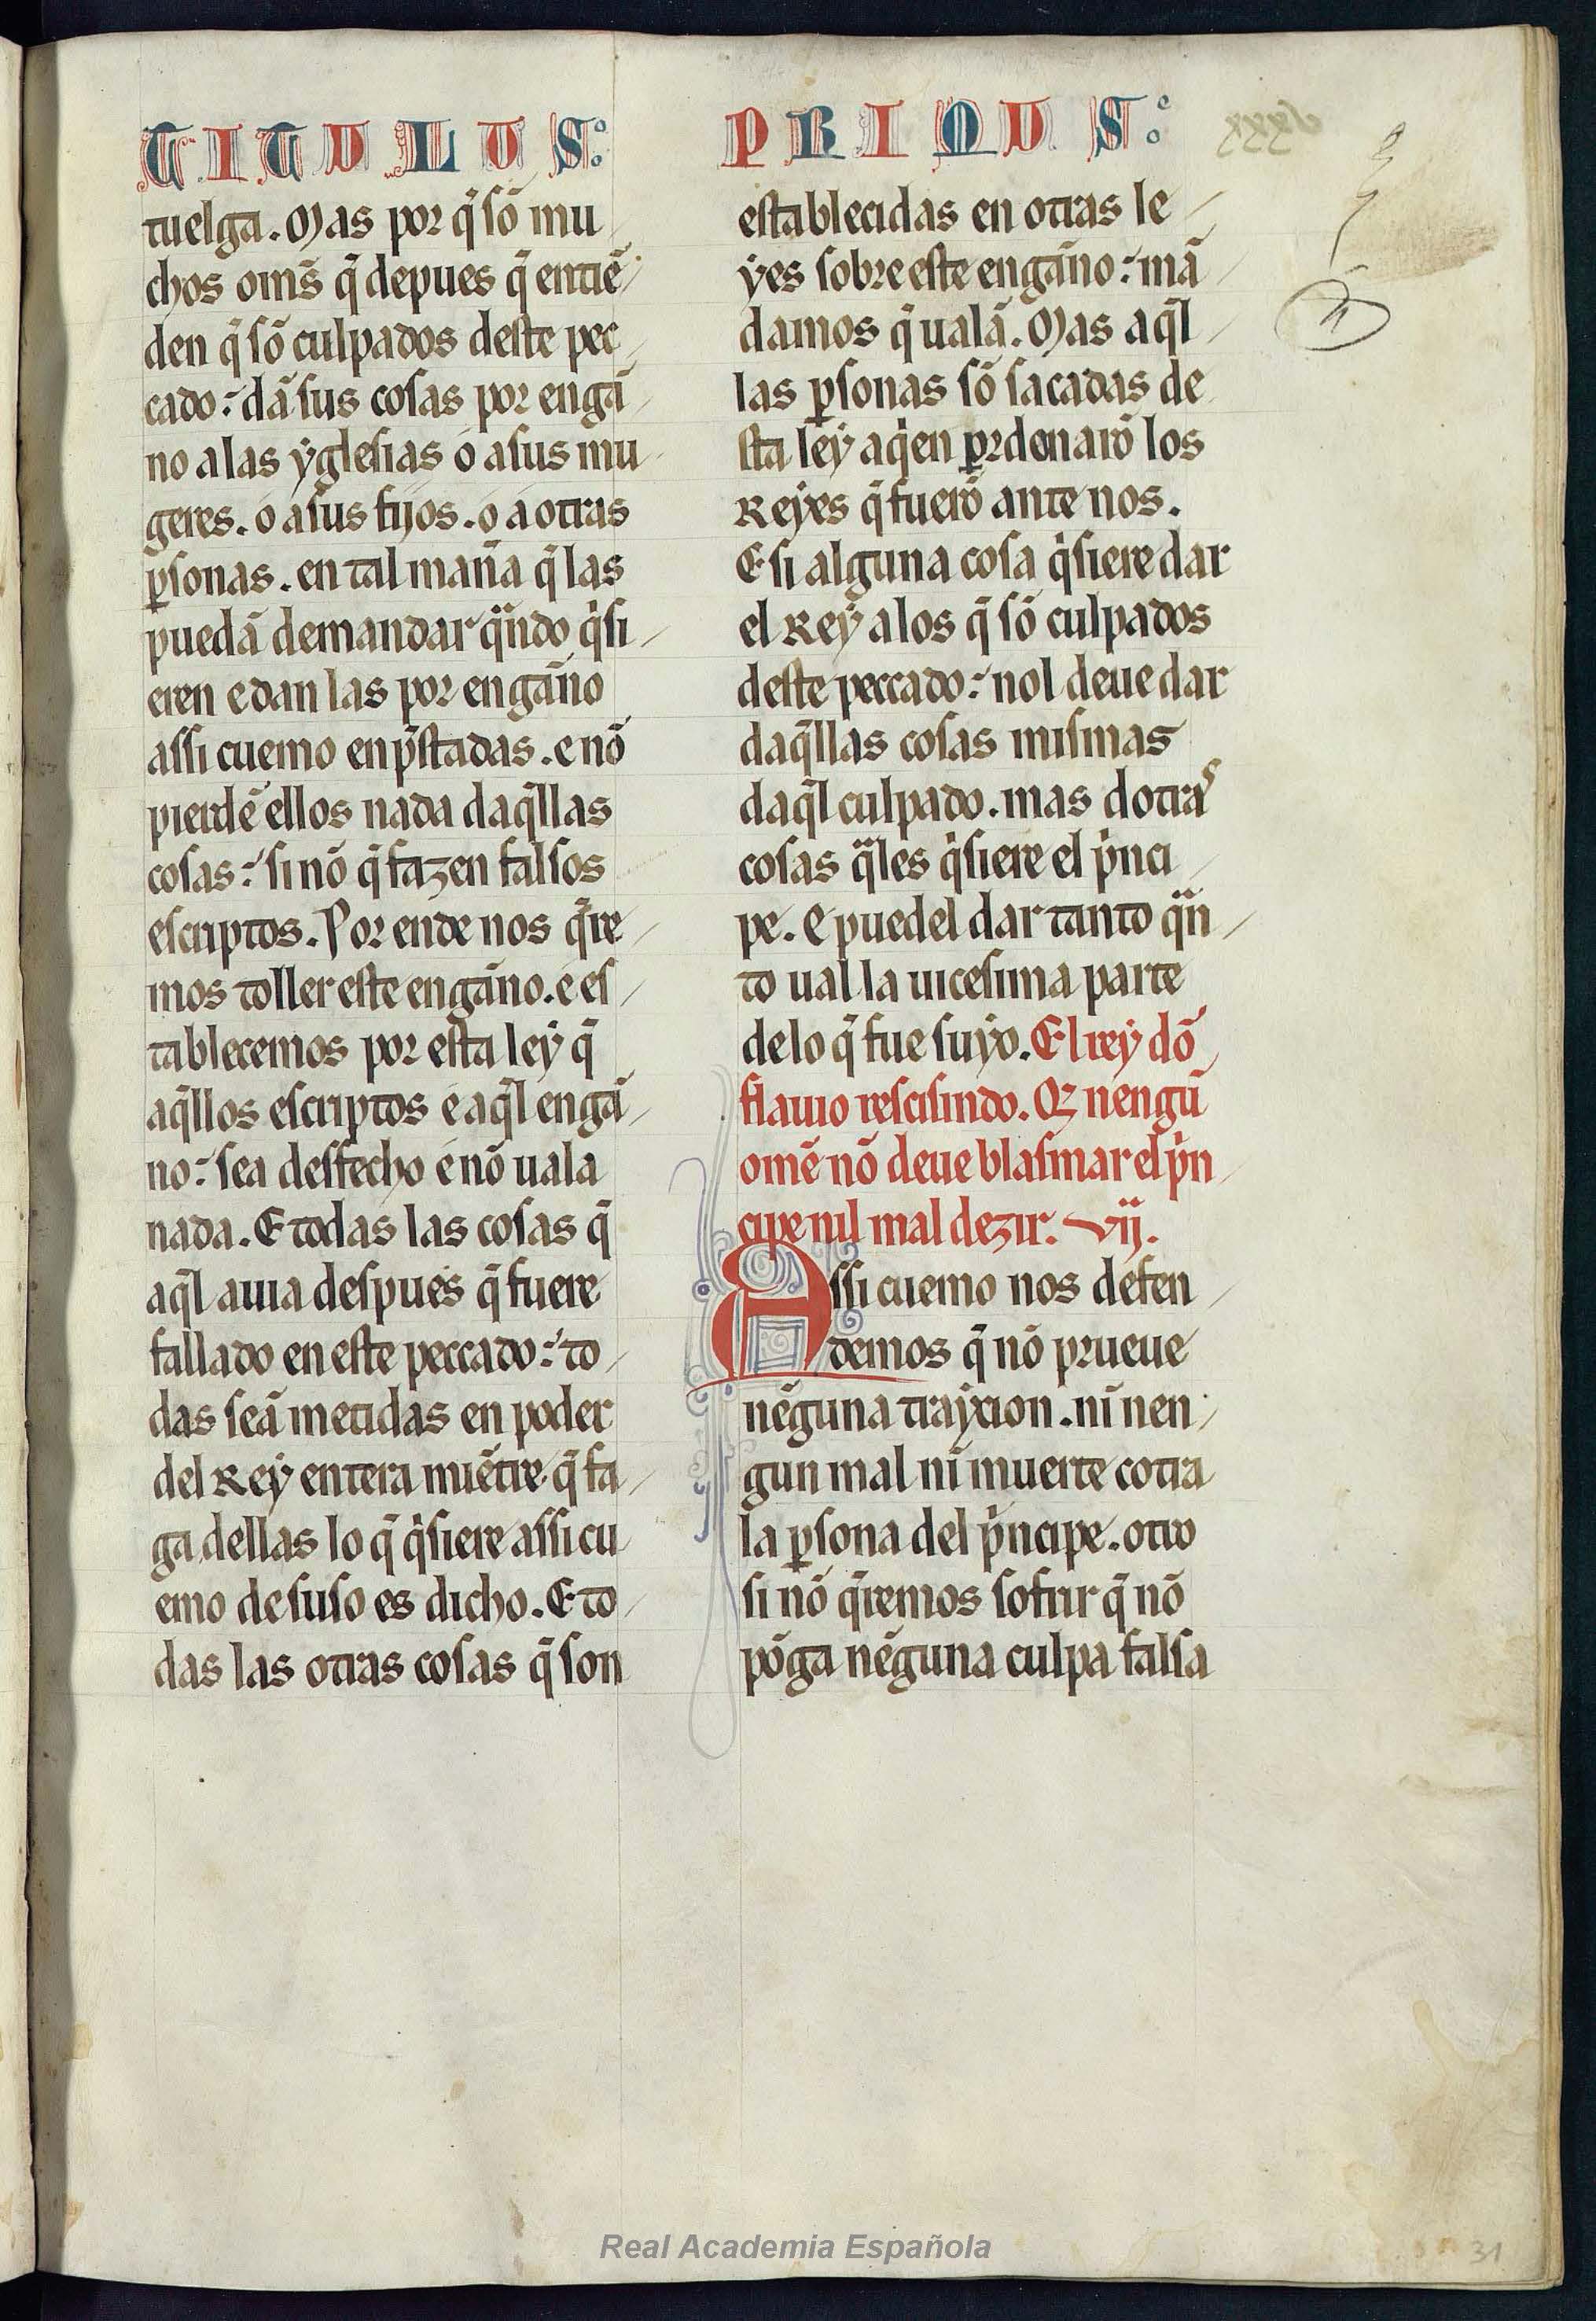 TITULUS:
tuelga. Mas por q̄ sõ mu
chos om̃s q̄ depues q̄ entiẽ
den q̄ sõ culpados deste pec
cado: dã sus cosas por engã
no a las yglesias o a sus mu
geres. o a sus fijos. o a otras
ꝑsonas. en tal mañ̃a q̄ las
puedã demandar qñdo q̇si
eren e dan las por engãno
assi cuemo enp̃stadas. e nõ
pierdẽ ellos nada daq̄llas
cosas: si nõ q̄ fazen falsos
escriptos. Por ende nos q̄re
mos toller este engãno. e es
tablecemos por esta ley q̄
aq̄llos escriptos e aq̄l engã
no: sea desfecho e nõ uala
nada. E todas las cosas q̄
aq̄l auia despues q̄ fuere
fallado en este peccado: to
das seã metidas en poder
del Rey entera miẽtre q̄ fa
ga dellas lo q̄ q̇siere assi cu
emo de suso es dicho. E to
das las otras cosas q̄ son
PRIMUS:
establecidas en otras le
yes sobre este engãno: mã
damos q̄ ualã. Mas aq̄l
las ꝑsonas sõ sacadas de
sta ley a q̇en ꝑdonarõ los
Reyes q̄ fuerõ ante nos.
E si alguna cosa q̇siere dar
el Rey a los q̄ sõ culpados
deste peccado: nol deue dar
daq̄llas cosas mismas
daq̄l culpado. mas dotras
cosas q̃les q̇siere el ṗnci
pe. E puedel dar tanto q̃n
to ual la uicesima parte
de lo q̄ fue suyo. El rey dõ
flauio rescisindo. Qȝ nengũ
omẽ nõ deue blasmar el ṗn
cipe nil mal dezir. vij.
Assi cuemo nos defen
demos q̄ nõ prueue
nẽguna trayxion. nĩ nen
gun mal nĩ muerte cotra
la ꝑsona del ṗncipe. otro
si nõ q̄remos sofrir q̄ nõ
põga nẽguna culpa falsa
Real Academia Española
31